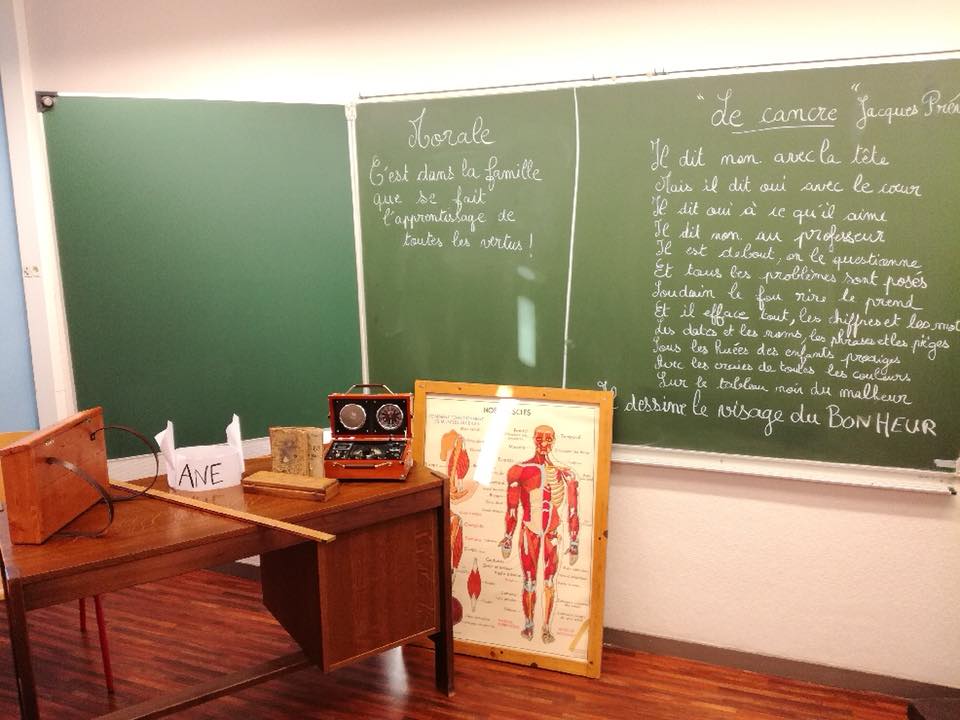 Morale
C'est dans la famille
que se fait
l'apprentissage de
toutes les vertus !
"Le cancre" Jacques Prév
Il dit non avec la tête
Mais il dit oui avec le cœur
Il dit oui à ce qu'il aime
Il dit non au professeur
Il est debout, on le questionne
Et tous les problèmes sont posés
Soudain le fou rire le prend
Et il efface tout, les chiffres et les mot
Les dates et les noms, les phrases et les pièges
Sous les huées des enfants prodiges
Avec les craies de toutes les couleurs
Sur le tableau noir du malheur
Il dessine le visage du BONHEUR
ANE